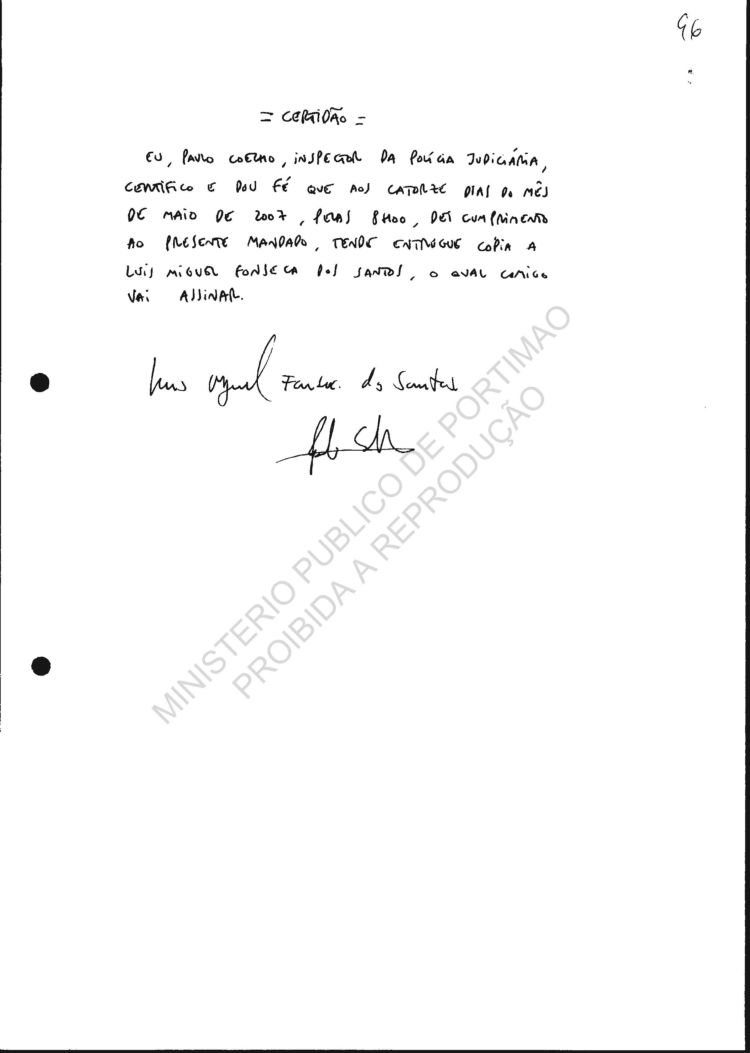 96
= CERTIDÃO =
EU, PAULO COELHO, INSPECTOR DA POLÍCIA JUDICIÁRIA,
CERTIFICO E DOU FÉ QUE AOS CATORZE DIAS DO MÊS
DE MAIO DE 2007, PELAS 8H00, DEI CUMPRIMENTO
AO PRESENTE MANDADO, TENDO ENTREGUE CÓPIA A
LUIS MIGUEL FONSECA DOS SANTOS, O QUAL COMIGO
VAI ASSINAR.
Luis Miguel Fonseca dos Santos
MINISTERIO PUBLICO DE PORTIMAO
PROIBIDA A REPRODUÇÃO